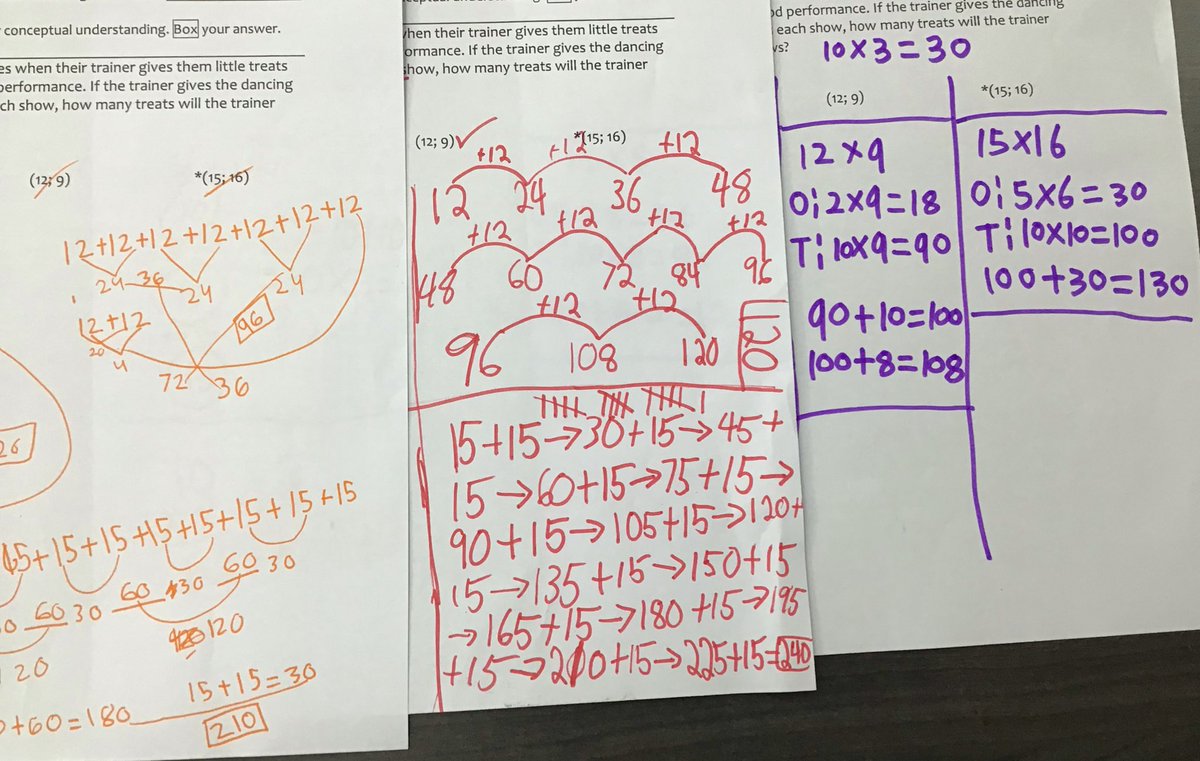 conceptual understanding. Box your answer.
es when their trainer gives them little treats
performance. If the trainer gives the dancing
ch show, how many treats will the trainer
(12; 9)
*(15; 16)
12+12+12+12+12+12+12
24 36 24 24
12+12
20 4
96
72 36
26
15+15+15+15+15+15+15+15
60 30 60 30 60 30
120
20
15+15=30
+60=180
210
when their trainer gives them little treats
ormance. If the trainer gives the dancing
show, how many treats will the trainer
(12; 9)
*(15; 16)
+12 +12 +12
12 24 36 48
+12 +12 +12 +12
48 60 72 84 96
+12 +12
96 108 120
120
15+15→30+15→45+
15→60+15→75+15→
90+15→105+15→120+
15→135+15→150+15
→165+15→180+15→195
+15→210+15→225+15=240
od performance. If the trainer gives the dancing
each show, how many treats will the trainer
ws?
10×3=30
(12; 9)
12×9
O; 2×9=18
T; 10×9=90
90+10=100
100+8=108
*(15; 16)
15×16
O; 5×6=30
T; 10×10=100
100+30=130